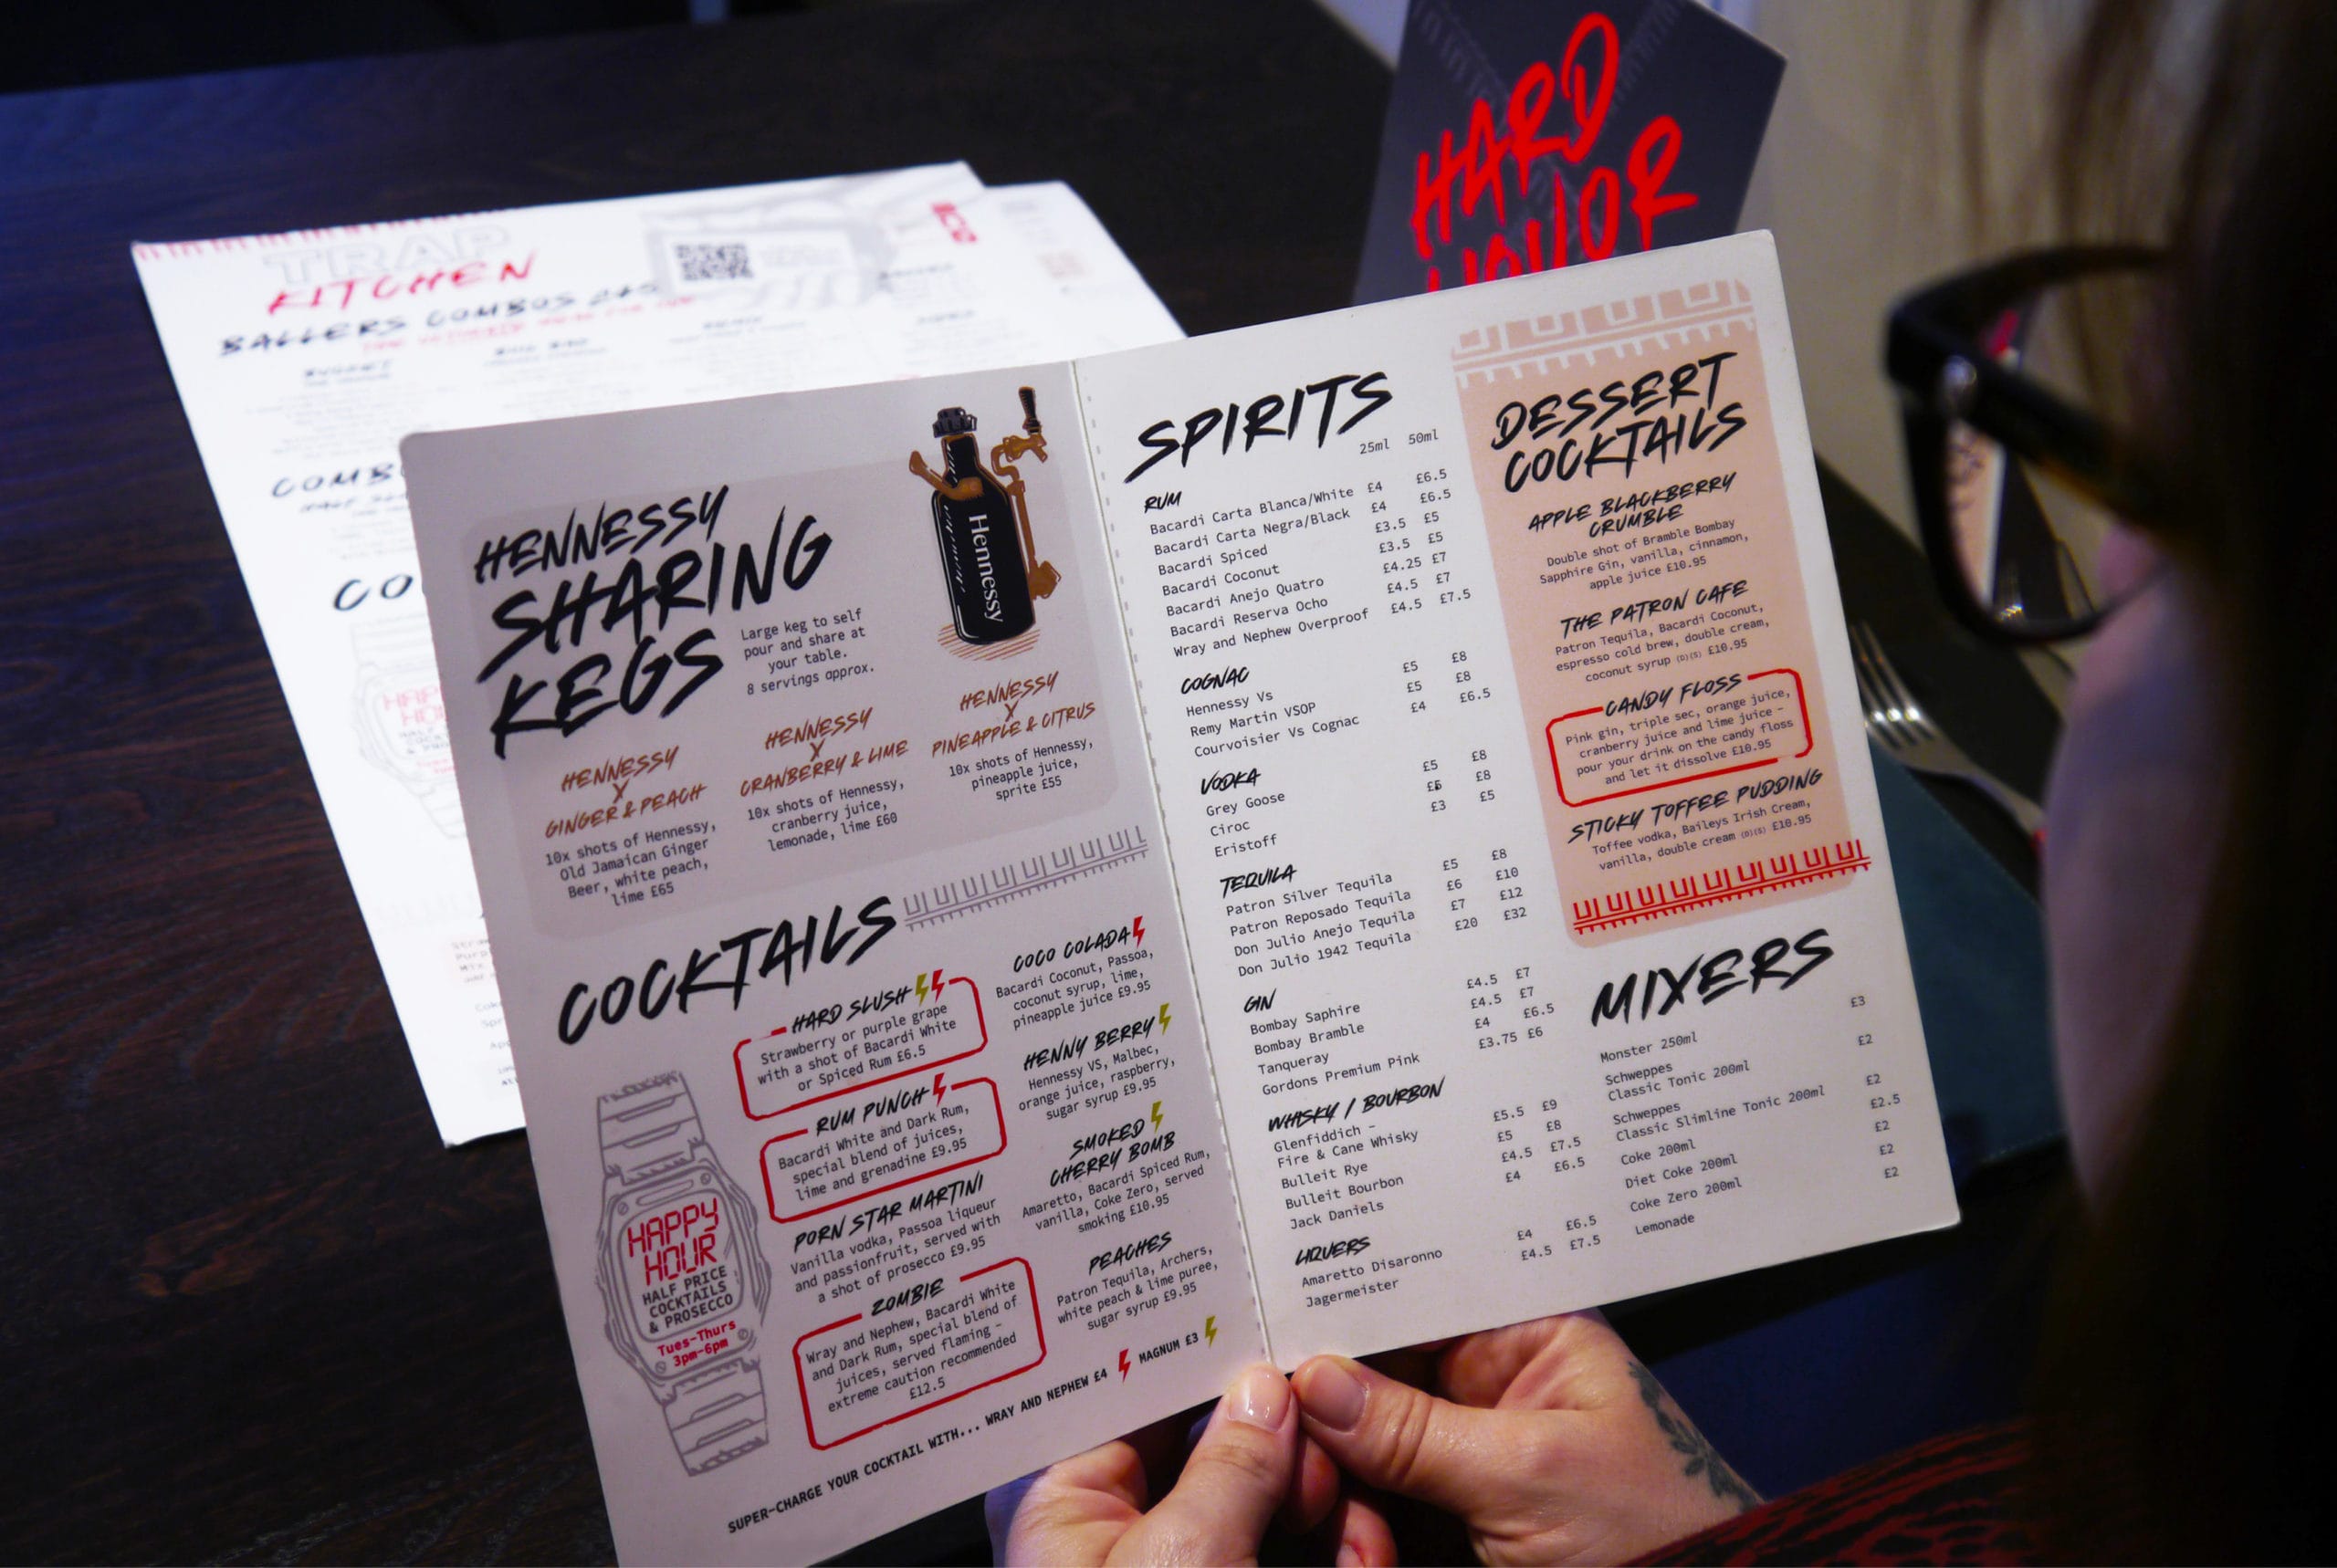 HARD
LIQUOR
TRAP
KITCHEN
BALLERS COMBOS £45
HENNESSY
SHARING
KEGS
Large keg to self
pour and share at
your table.
8 servings approx.
Hennessy
HENNESSY
X
GINGER & PEACH
10x shots of Hennessy,
Old Jamaican Ginger
Beer, white peach,
lime £65
HENNESSY
X
CRANBERRY & LIME
10x shots of Hennessy,
cranberry juice,
lemonade, lime £60
HENNESSY
X
PINEAPPLE & CITRUS
10x shots of Hennessy,
pineapple juice,
sprite £55
COCKTAILS
HARD SLUSH
Strawberry or purple grape
with a shot of Bacardi White
or Spiced Rum £6.5
RUM PUNCH
Bacardi White and Dark Rum,
special blend of juices,
lime and grenadine £9.95
PORN STAR MARTINI
Vanilla vodka, Passoa liqueur
and passionfruit, served with
a shot of prosecco £9.95
ZOMBIE
Wray and Nephew, Bacardi White
and Dark Rum, special blend of
juices, served flaming -
extreme caution recommended
£12.5
COCO COLADA
Bacardi Coconut, Passoa,
coconut syrup, lime,
pineapple juice £9.95
HENNY BERRY
Hennessy VS, Malbec,
orange juice, raspberry,
sugar syrup £9.95
SMOKED
CHERRY BOMB
Amaretto, Bacardi Spiced Rum,
vanilla, Coke Zero, served
smoking £10.95
PEACHES
Patron Tequila, Archers,
white peach & lime puree,
sugar syrup £9.95
HAPPY
HOUR
HALF PRICE
COCKTAILS
& PROSECCO
Tues-Thurs
3pm-6pm
SUPER-CHARGE YOUR COCKTAIL WITH... WRAY AND NEPHEW £4 MAGNUM £3
SPIRITS
25ml 50ml
RUM
Bacardi Carta Blanca/White £4 £6.5
Bacardi Carta Negra/Black £4 £6.5
Bacardi Spiced £3.5 £5
Bacardi Coconut £3.5 £5
Bacardi Anejo Quatro £4.25 £7
Bacardi Reserva Ocho £4.5 £7
Wray and Nephew Overproof £4.5 £7.5
COGNAC
Hennessy Vs £5 £8
Remy Martin VSOP £5 £8
Courvoisier Vs Cognac £4 £6.5
VODKA
Grey Goose £5 £8
Ciroc £8
Eristoff £3 £5
TEQUILA
Patron Silver Tequila £5 £8
Patron Reposado Tequila £6 £10
Don Julio Anejo Tequila £7 £12
Don Julio 1942 Tequila £20 £32
GIN
Bombay Saphire £4.5 £7
Bombay Bramble £4.5 £7
Tanqueray £4 £6.5
Gordons Premium Pink £3.75 £6
WHISKY / BOURBON
Glenfiddich -
Fire & Cane Whisky £5.5 £9
Bulleit Rye £5 £8
Bulleit Bourbon £4.5 £7.5
Jack Daniels £4 £6.5
LIQUERS
Amaretto Disaronno £4 £6.5
Jagermeister £4.5 £7.5
DESSERT
COCKTAILS
APPLE BLACKBERRY
CRUMBLE
Double shot of Bramble Bombay
Sapphire Gin, vanilla, cinnamon,
apple juice £10.95
THE PATRON CAFE
Patron Tequila, Bacardi Coconut,
espresso cold brew, double cream,
coconut syrup (D)(S) £10.95
CANDY FLOSS
Pink gin, triple sec, orange juice,
cranberry juice and lime juice -
pour your drink on the candy floss
and let it dissolve £10.95
STICKY TOFFEE PUDDING
Toffee vodka, Baileys Irish Cream,
vanilla, double cream (D)(S) £10.95
MIXERS
Monster 250ml £3
Schweppes
Classic Tonic 200ml £2
Schweppes
Classic Slimline Tonic 200ml £2
Coke 200ml £2.5
Diet Coke 200ml £2
Coke Zero 200ml £2
Lemonade £2